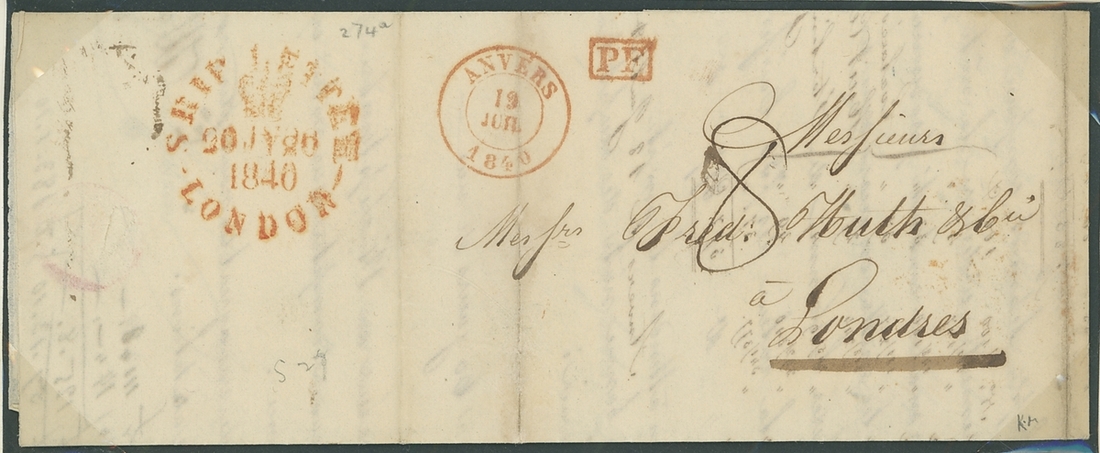 274a
SHIP LETTER
20 JY 20
1840
LONDON
ANVERS
19
JUIL
1840
PF
8
Messieurs
Messrs Fred: Huth & Cie
à
Londres
K.M